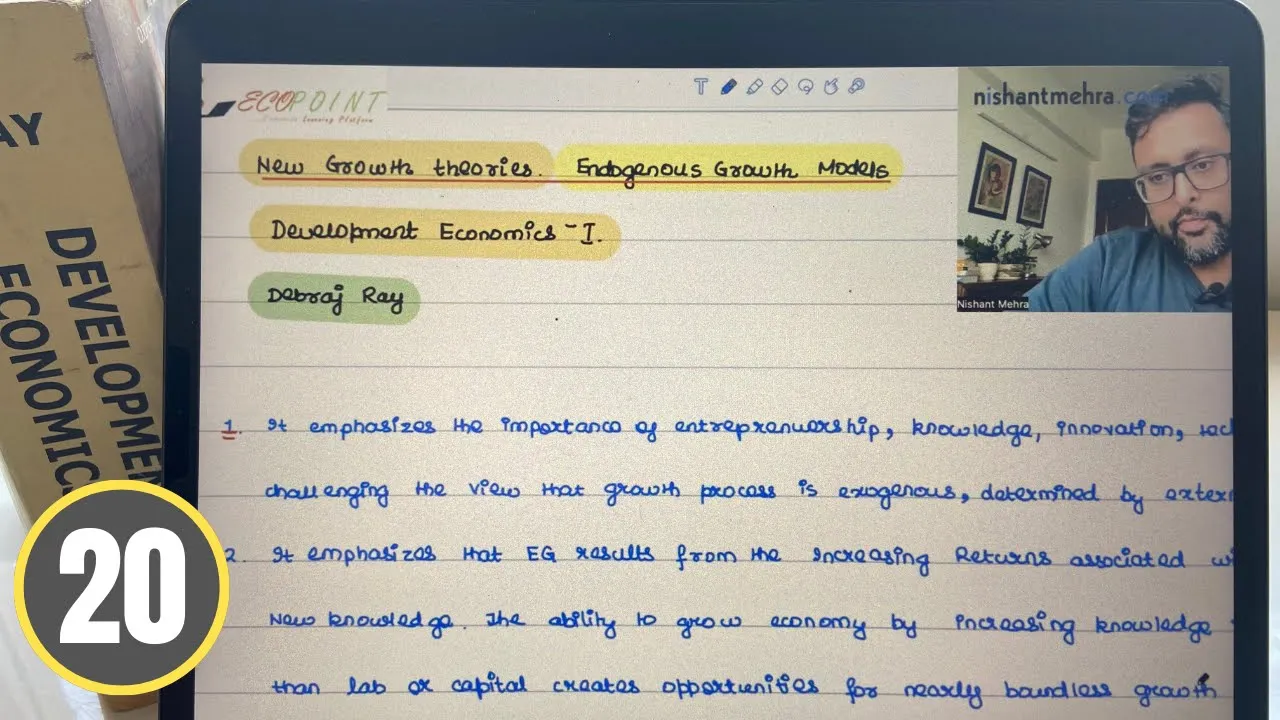 AY
DEVELOPMEN
ECONOMIC
ECOPOINT
Learning Platform
nishantmehra.com
Nishant Mehra
New Growth theories. Endogenous Growth Models
Development Economics - I.
Debraj Ray
1. It emphasizes the importance of entreprenuership, knowledge, innovation, tec
challenging the view that growth process is exogenous, determined by extern
2. It emphasizes that EG results from the Increasing Returns associated wi
New knowledge. The ability to grow economy by increasing knowledge
than lab or capital creates opportunities for nearly boundless growth
20